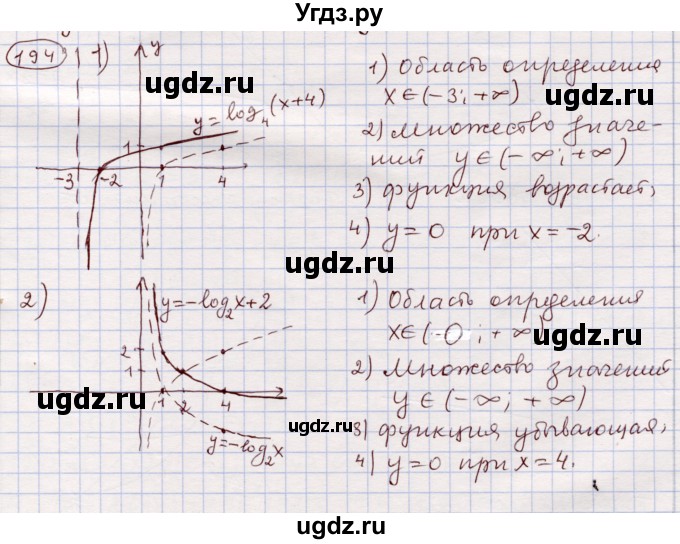 Угдз.ру
194
1)
y
y=log₄(x+4)
1
-3
-2
1
4
1) Область определения
x∈(-3; +∞)
2) множество значе-
ний y∈(-∞; +∞)
3) функция возрастает;
4) y=0 при x=-2.
ugdz.ru
ugdz.ru
ugdz.ru
ugdz.ru
2)
y=-log₂x+2
2
1
1
2
4
y=-log₂x
1) Область определения
x∈(-0; +∞)
2) Множество значений
y∈(-∞; +∞)
3) функция убывающая;
4) y=0 при x=4.
ugdz.ru
ugdz.ru
ugdz.ru
ugdz.ru
ugdz.ru